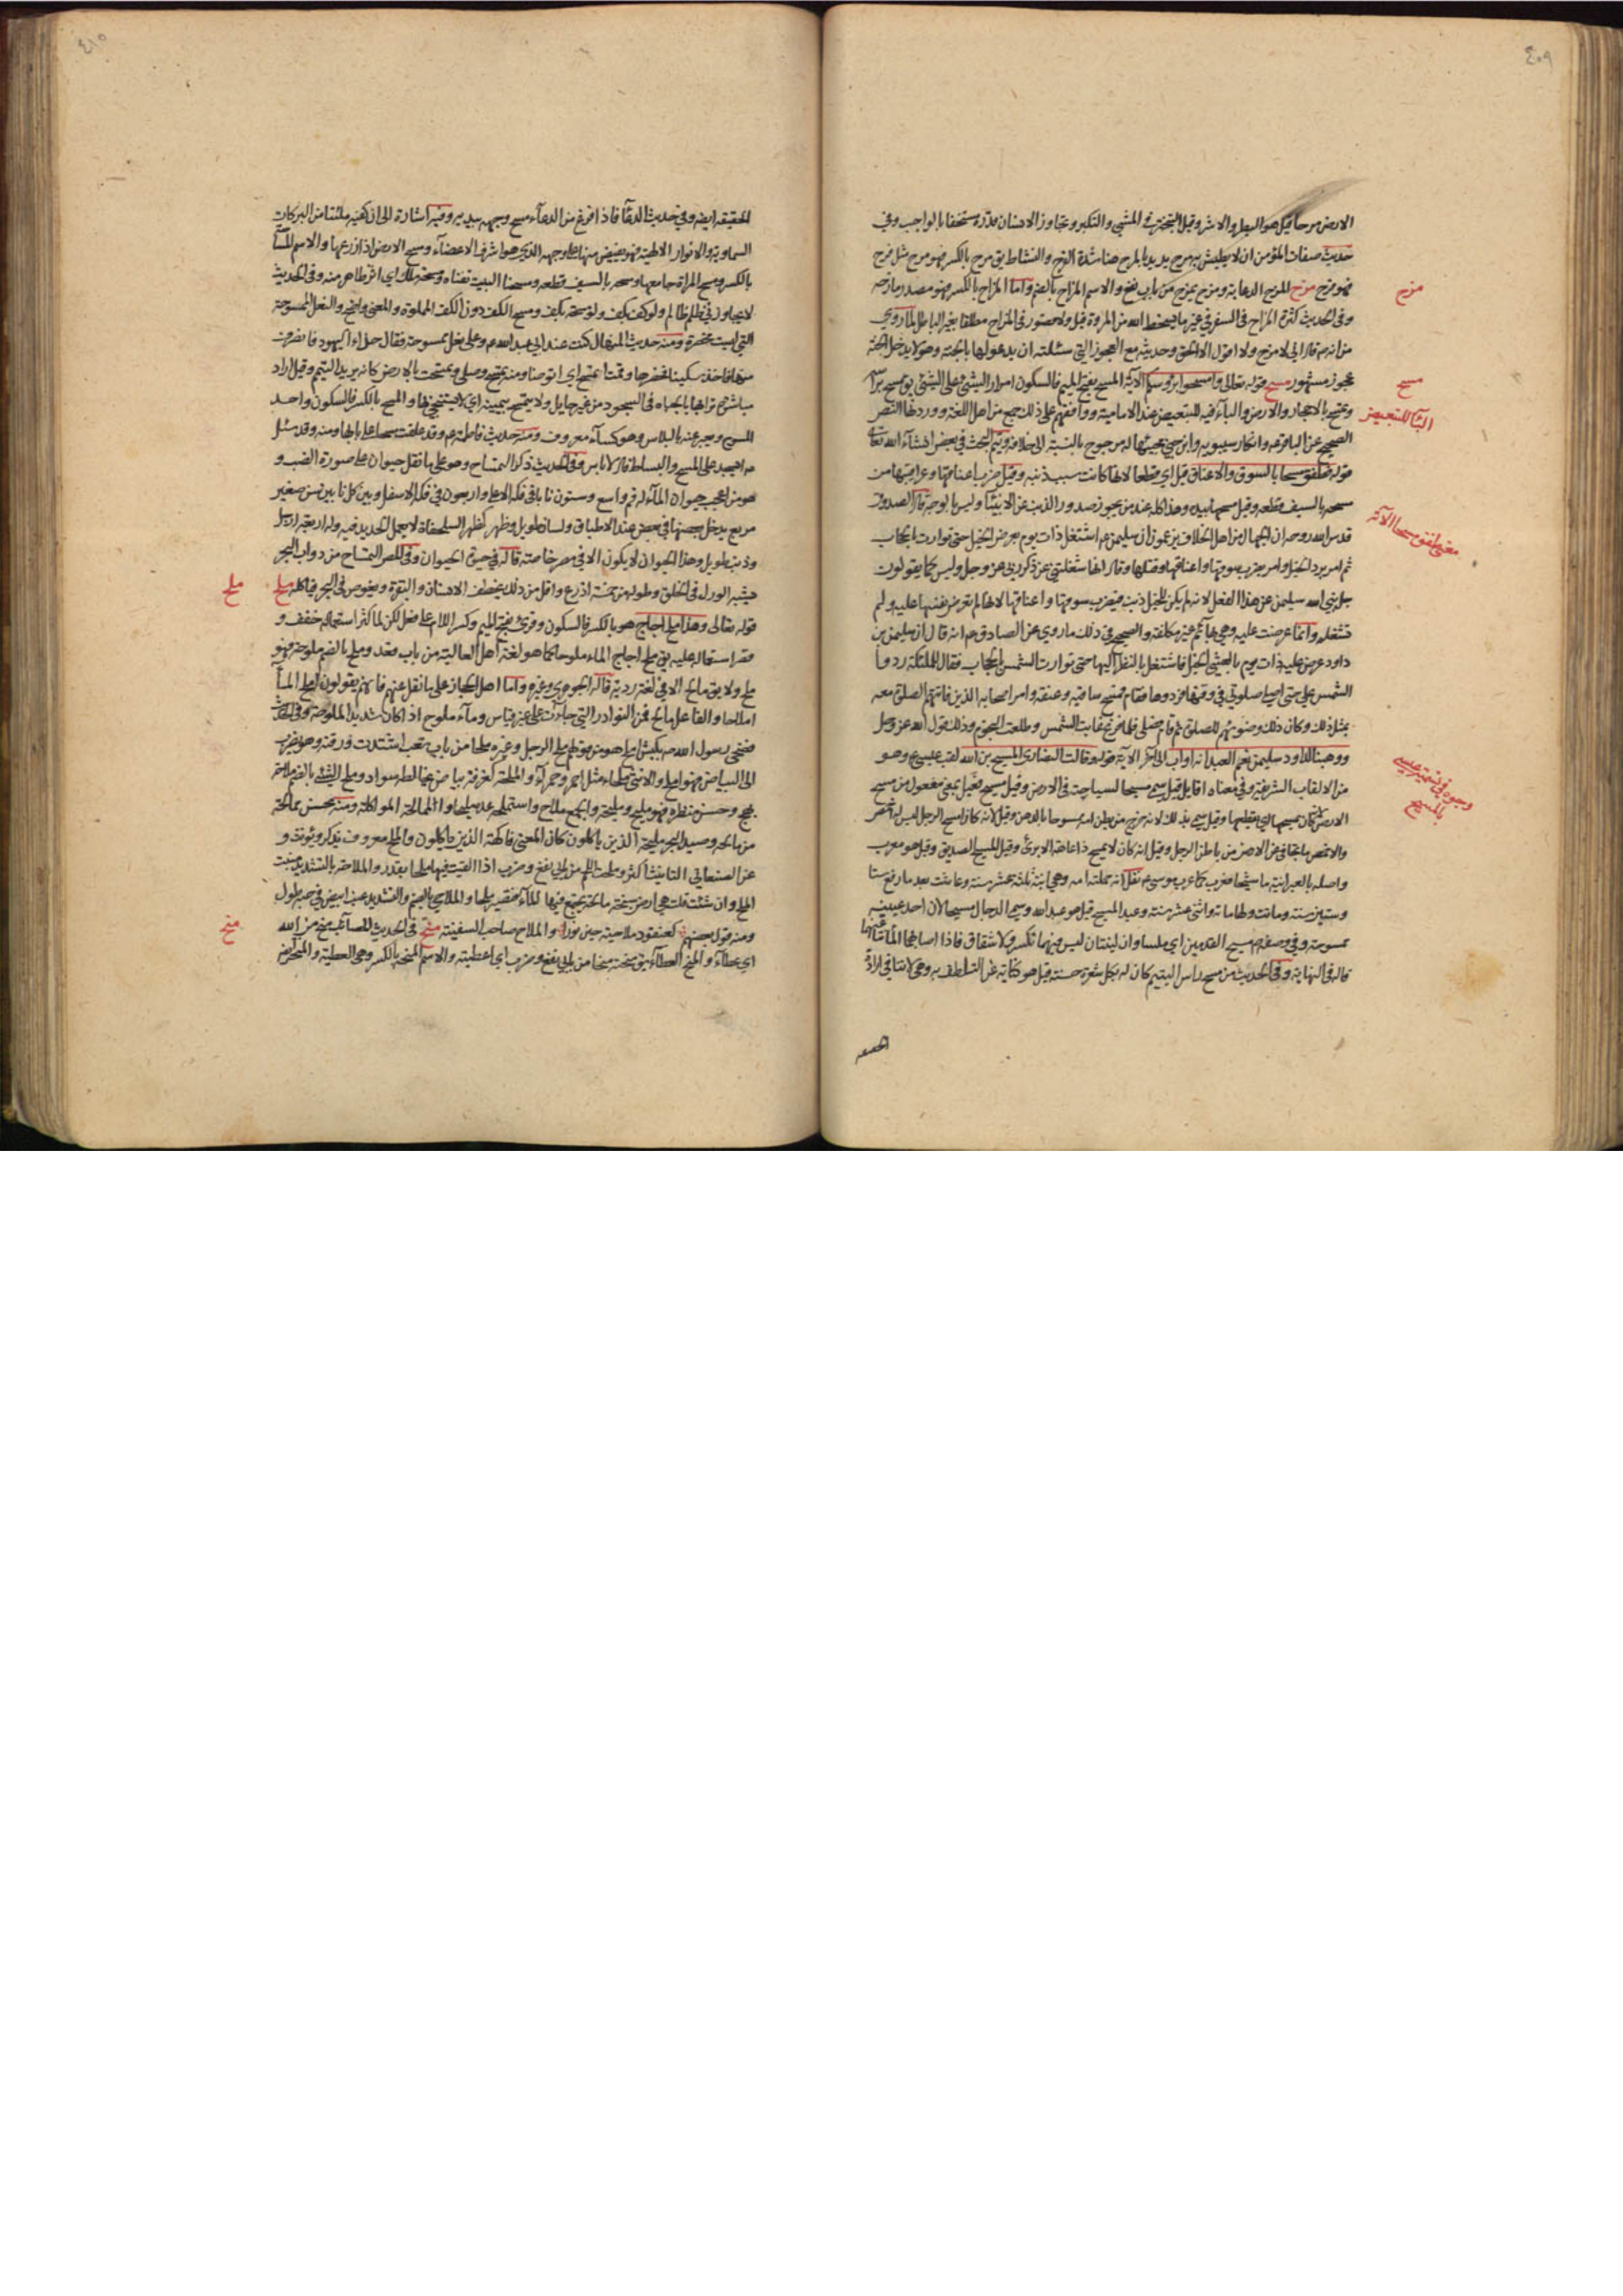 ٤٠٩
الارض مرحا قيل هو البطر والاشر وقيل التبختر في المشي والتكبر وتجاوز الانسان قدره مستخفا بالواجب وفي
حديث صفات المؤمن ان لا يطيش به مرح يريد بالمرح هنا شدة الفرح والنشاط يق مرح بالكسر فهو مرح مثل فرح
فهو فرح مزح المزح الدعابة ومزح يمزح من باب نفع والاسم المزاح بالضم واما المزاح بالكسر فهو مصدر مازحه
وفي الحديث كثرة المزاح في السفر في غير ما يسخط الله من المروة قيل ولا قصور في المزاح مطلقا بغير الباطل لما روي
من انه ص قال اني لامزح ولا اقول الا الحق وحديثه مع العجوز التي سئلته ان يدعو لها بالجنة وقوله لا يدخل الجنة
عجوز مشهور مسح قوله تعالى وامسحوا برؤسكم الآية المسح بفتح الميم فالسكون امرار الشئ على الشئ يق مسح براسه
وتمسح بالاحجار والارض والباء فيه للتبعيض عند الامامية ووافقهم على ذلك جمع من اهل اللغة وورد بها النص
الصحيح عن الباقر ع وانكار سيبويه وابن جني مجيئها له مرجوح بالنسبة الى خلافه ويتم البحث في بعض انشاء الله تعالى
قوله فطفق مسحا بالسوق والاعناق قيل اي قطعا لانها كانت سبب ذنبه وقيل ضرب اعناقها وعراقيبها من
مسحه بالسيف قطعه وقيل مسحها بيده وهذا كله عند من يجوز صدور الذنب عن الانبياء وليس بالوجه قال الصدوق
قدس الله روحه ان الجهال من اهل الخلاف يزعمون ان سليمن ع اشتغل ذات يوم بعرض الخيل حتى توارت بالحجاب
ثم امر برد الخيل وامر بضرب سوقها واعناقها وقتلها وقال انها شغلتني عن ذكر ربي عز وجل وليس كما يقولون
جل نبي الله سليمن عن هذا الفعل لانه لم يكن للخيل ذنب فيضرب سوقها واعناقها لانها لم تعرض نفسها عليه ولم
تشغله وانما عرضت عليه وهي بهائم غير مكلفة والصحيح في ذلك ما روي عن الصادق ع انه قال ان سليمن بن
داود عرض عليه ذات يوم بالعشي الخيل فاشتغل بالنظر اليها حتى توارت الشمس بالحجاب فقال للملئكة ردوا
الشمس علي حتى اصلي صلوتي في وقتها فردوها فقام فمسح ساقيه وعنقه وامر اصحابه الذين فاتتهم الصلوة معه
بمثل ذلك وكان ذلك وضوئهم للصلوة ثم قام فصلى فلما فرغ غابت الشمس وطلعت النجوم وذلك قول الله عز وجل
ووهبنا لداود سليمن نعم العبد انه اواب الى آخر الآية قوله وقالت النصارى المسيح بن الله لقب عيسى ع وهو
من الالقاب الشريفة وفي معناه اقاويل قيل سمي مسيحا لسياحته في الارض وقيل مسيح فعيل بمعنى مفعول من مسح
الارض لانه كان يمسحها اي يقطعها وقيل سمي بذلك لانه خرج من بطن امه ممسوحا بالدهن وقيل لانه كان امسح الرجل ليس له اخمص
والاخمص ما تجافى عن الارض من باطن الرجل وقيل انه كان لا يمسح ذا عاهة الا برئ وقيل المسيح الصديق وقيل هو معرب
واصله بالعبرانية ماشيحا فعرب كما عرب موسى ع نقل انه حملته امه وهي ابنة ثلثة عشر سنة وعاشت بعد ما رفع ستا
وستين سنة وماتت ولها ماة واثنى عشر سنة وعبد المسيح قيل هو عبد الله وسمي الدجال مسيحا لان احد عينيه
ممسوحة وفي وصفه ص مسيح القدمين اي ملسا وان لينتان ليس فيهما تكسر ولا شقاق فاذا اصابهما الماء نبا عنهما
قاله في النهاية وفي الحديث من مسح راس اليتيم كان له بكل شعرة حسنة قيل هو كناية عن التلطف به وهي لا تنافي ارادة
الحقيقة
مزح
مسح
الباء للتبعيض
معنى فطفق مسحا الآية
وجوه في تسمية عيسى
بالمسيح
٤١٠
الحقيقة ايضه وفي حديث الدعاء فاذا فرغ من الدعاء مسح وجهه بيديه وفيه اشارة الى ان كفيه ملئتا من البركات
السماوية والانوار الالهية فهو يفيض منها على وجهه الذي هو اشرف الاعضاء ومسح الارض اذا ذرعها والاسم المساحة
بالكسر ومسح المراة جامعها ومسحه بالسيف قطعه ومسحنا البيت طفناه ومسحة ملك اي اثر ظاهر منه وفي الحديث
لا يجاوزني ظلم ظالم ولو كف بكف ولو مسحة بكف ومسح الكف دون الكف المملوة والمعنى واضح والنعل الممسوحة
التي ليست مخصرة ومنه حديث المنهال كنت عند ابي عبد الله ع وعلي نعل ممسوحة فقال حذاء اليهود فانصرفت
منها فاخذ سكينا فخصرها وقمت اتمسح اي اتوضا ومنه تمسح وصلى وتمسحت بالارض كانه يريد التيمم وقيل اراد
مباشرة ترابها بالجباه في السجود من غير حايل ولا يتمسح بيمينه اي لا يستنجي بها والمسح بالكسر فالسكون واحد
المسوح ويعبر عنه بالبلاس وهو كساء معروف ومنه حديث فاطمة ع وقد علقت مسحا على بابها ومنه وقد سئل
عه ايسجد على المسح والبساط قال لا باس وفي الحديث ذكر التمساح وهو على ما نقل حيوان على صورة الضب و
هو من اعجب حيوان الماء له فم واسع وستون نابا في فكه الاعلى واربعون في فكه الاسفل وبين كل نابين سن صغير
مربع يدخل بعضها في بعض عند الاطباق ولسان طويل وظهر كظهر السلحفاة لا يعمل الحديد فيه وله اربعة ارجل
وذنب طويل وهذا الحيوان لا يكون الا في مصر خاصة قاله في حيوة الحيوان وفي المصر التمساح من دواب البحر
يشبه الورل في الخلق وطوله نحو خمسة اذرع واقل من ذلك يخطف الانسان والبقرة ويغوص في البحر فياكله ملح
قوله تعالى وهذا ملح اجاج هو بالكسر فالسكون وقرئ بفتح الميم وكسر اللام على فعل لكن لما كثر استعماله خفف و
قصر استعماله عليه يق ملح اجاج الماء ملوحا كما هو لغة اهل العالية من باب قعد وملح بالضم ملوحة فهو
ملح ولا يق مالح الا في لغة ردية قاله الجوهري وغيره واما اهل الحجاز على ما نقل عنهم فانهم يقولون املح الماء
املاحا والفاعل مالح فمن النوادر التي جاءت على غير قياس وماء ملوح اذا كان شديد الملوحة وفي الحديث
ضحى رسول الله ص بكبش املح هو من قولهم ملح الرجل وغيره ملحا من باب تعب اشتدت زرقته وهو يضرب
الى البياض فهو املح والانثى ملحاء مثل احمر وحمراء والملحة كغرفة بياض يخالطه سواد وملح الشئ بالضم ملاحة
بهج وحسن منظره فهو مليح ومليحة والجمع ملاح واستملحه عده مليحا والممالحة المواكلة ومنه يحسن ممالحة
من مالحه وصيد البحر مليحه الذين ياكلون كان المعنى فاكهة الذين ياكلون والملح معروف يذكر ويؤنث و
عن الصنعاني التانيث اكثر وملحت اللحم من بابي نفع وضرب اذا القيت فيها ملحا بقدر والملاحة بالتشديد منبت
الملح وان شئت قلت هي ارض سبخة مالحة يجتمع فيها الماء فيصير ملحا والملاحي بالضم والتشديد عنب ابيض في حبه طول
ومنه قول بعضهم كعنقود ملاحية حين نورا والملاح صاحب السفينة منح في الحديث المصائب منح من الله
اي عطاء والمنح العطاء يق منحته منحا من بابي نفع وضرب اي اعطيته والاسم المنحة بالكسر وهي العطية
ملح
منح